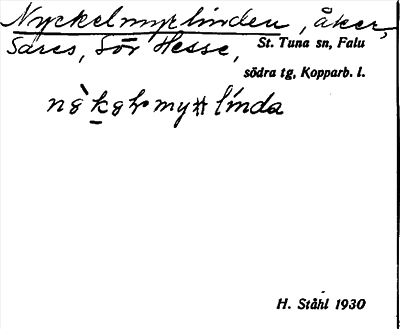 Nyckelmyrlinden, åker,
Sares, Sör Hesse, St. Tuna sn, Falu
södra tg, Kopparb. l.
H. Ståhl 1930